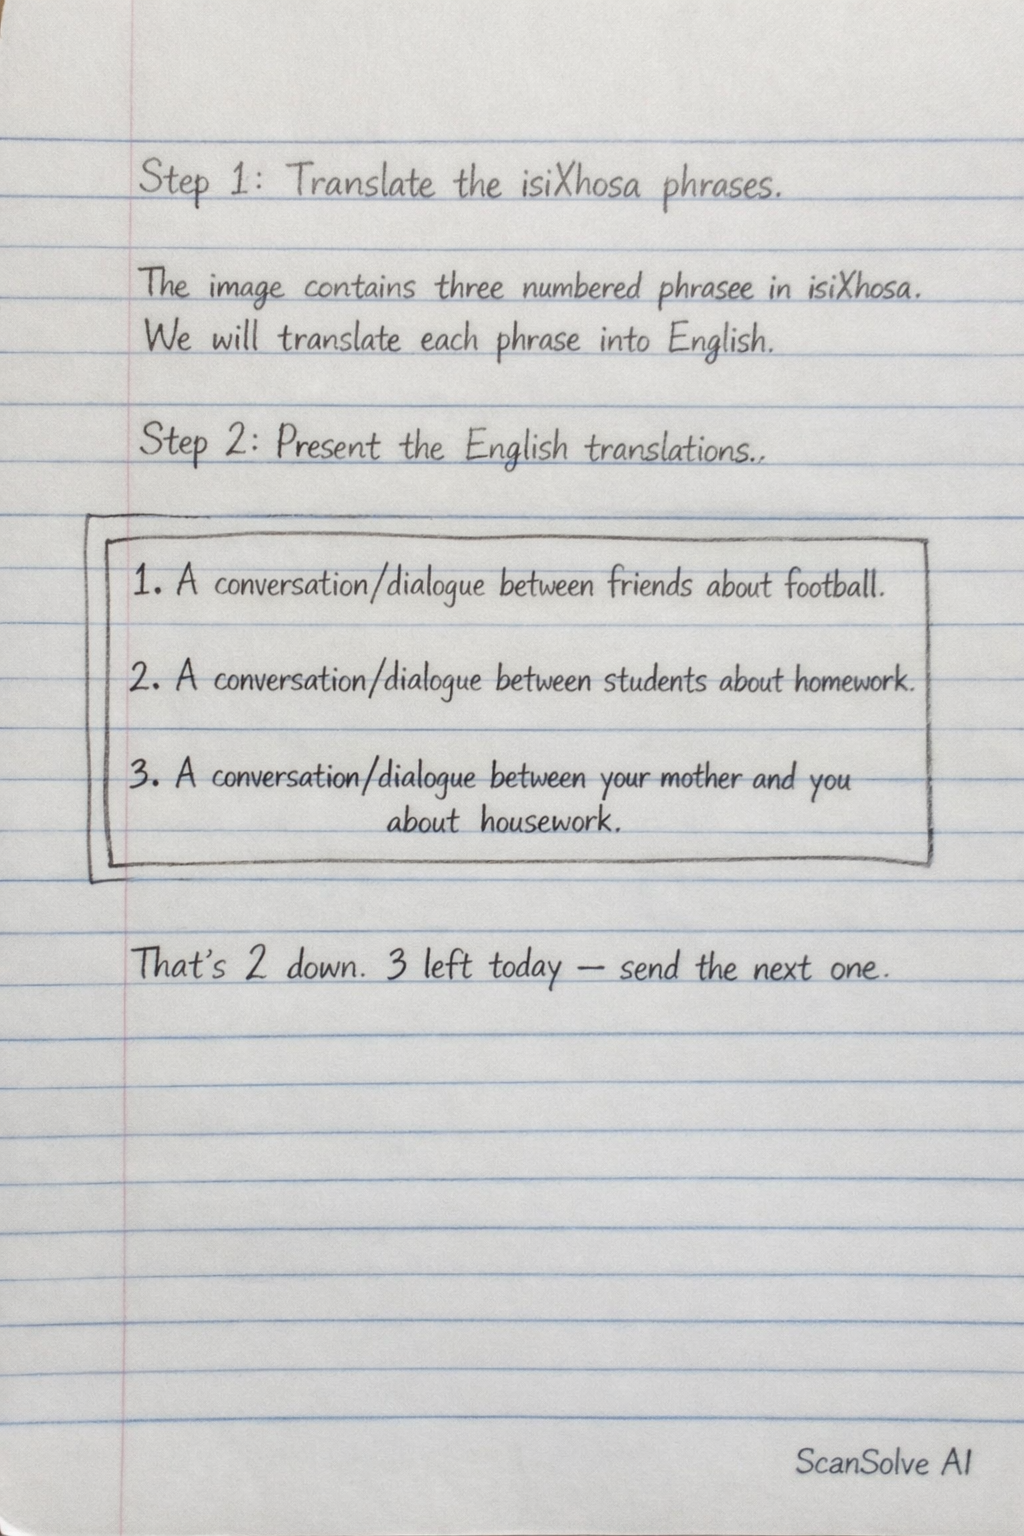 Step 1: Translate the isiXhosa phrases.
The image contains three numbered phrasee in isiXhosa.
We will translate each phrase into English.
Step 2: Present the English translations..
1. A conversation/dialogue between friends about football.
2. A conversation/dialogue between students about homework.
3. A conversation/dialogue between your mother and you
about housework.
That's 2 down. 3 left today — send the next one.
ScanSolve AI